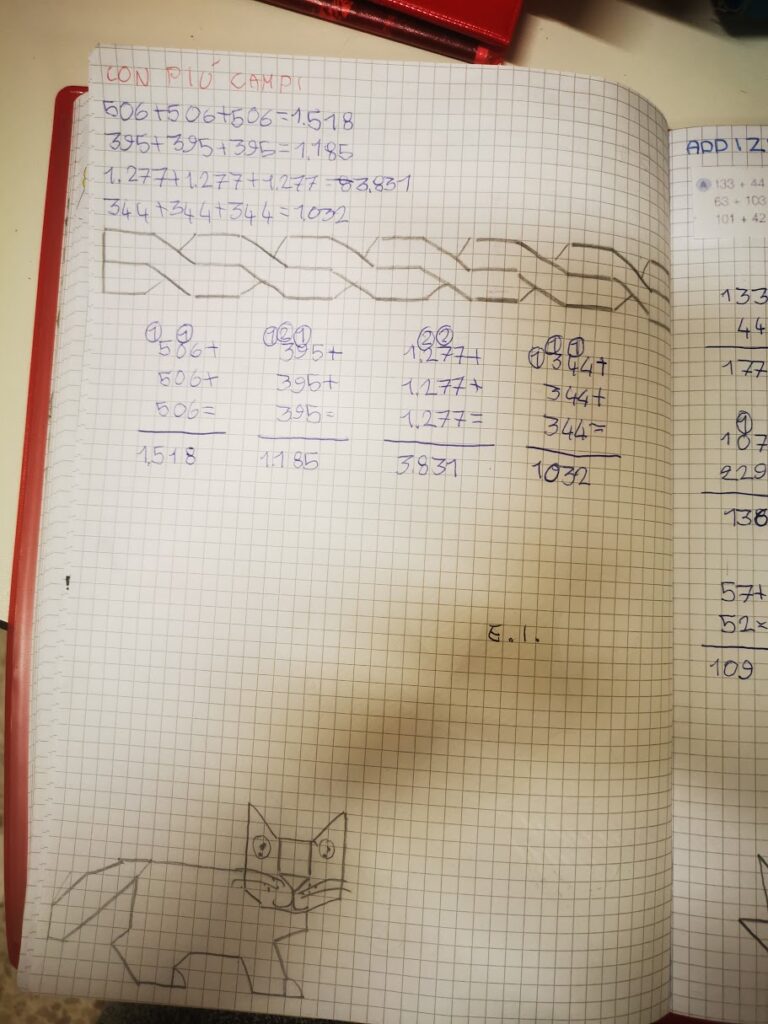 CON PIÚ CAMPI
506+506+506=1.518
395+395+395=1.185
1.277+1.277+1.277=3.831
344+344+344=1032
1 1
506+
506+
506=
1.518
1 2 1
395+
395+
395=
1.185
2 2
1.277+
1.277+
1.277=
3.831
1 1 1
344+
344+
344=
1032
E.I.
ADDIZ
A 133 + 44
63 + 103
101 + 42
133
44
177
1
107
229
138
57+
52×
109